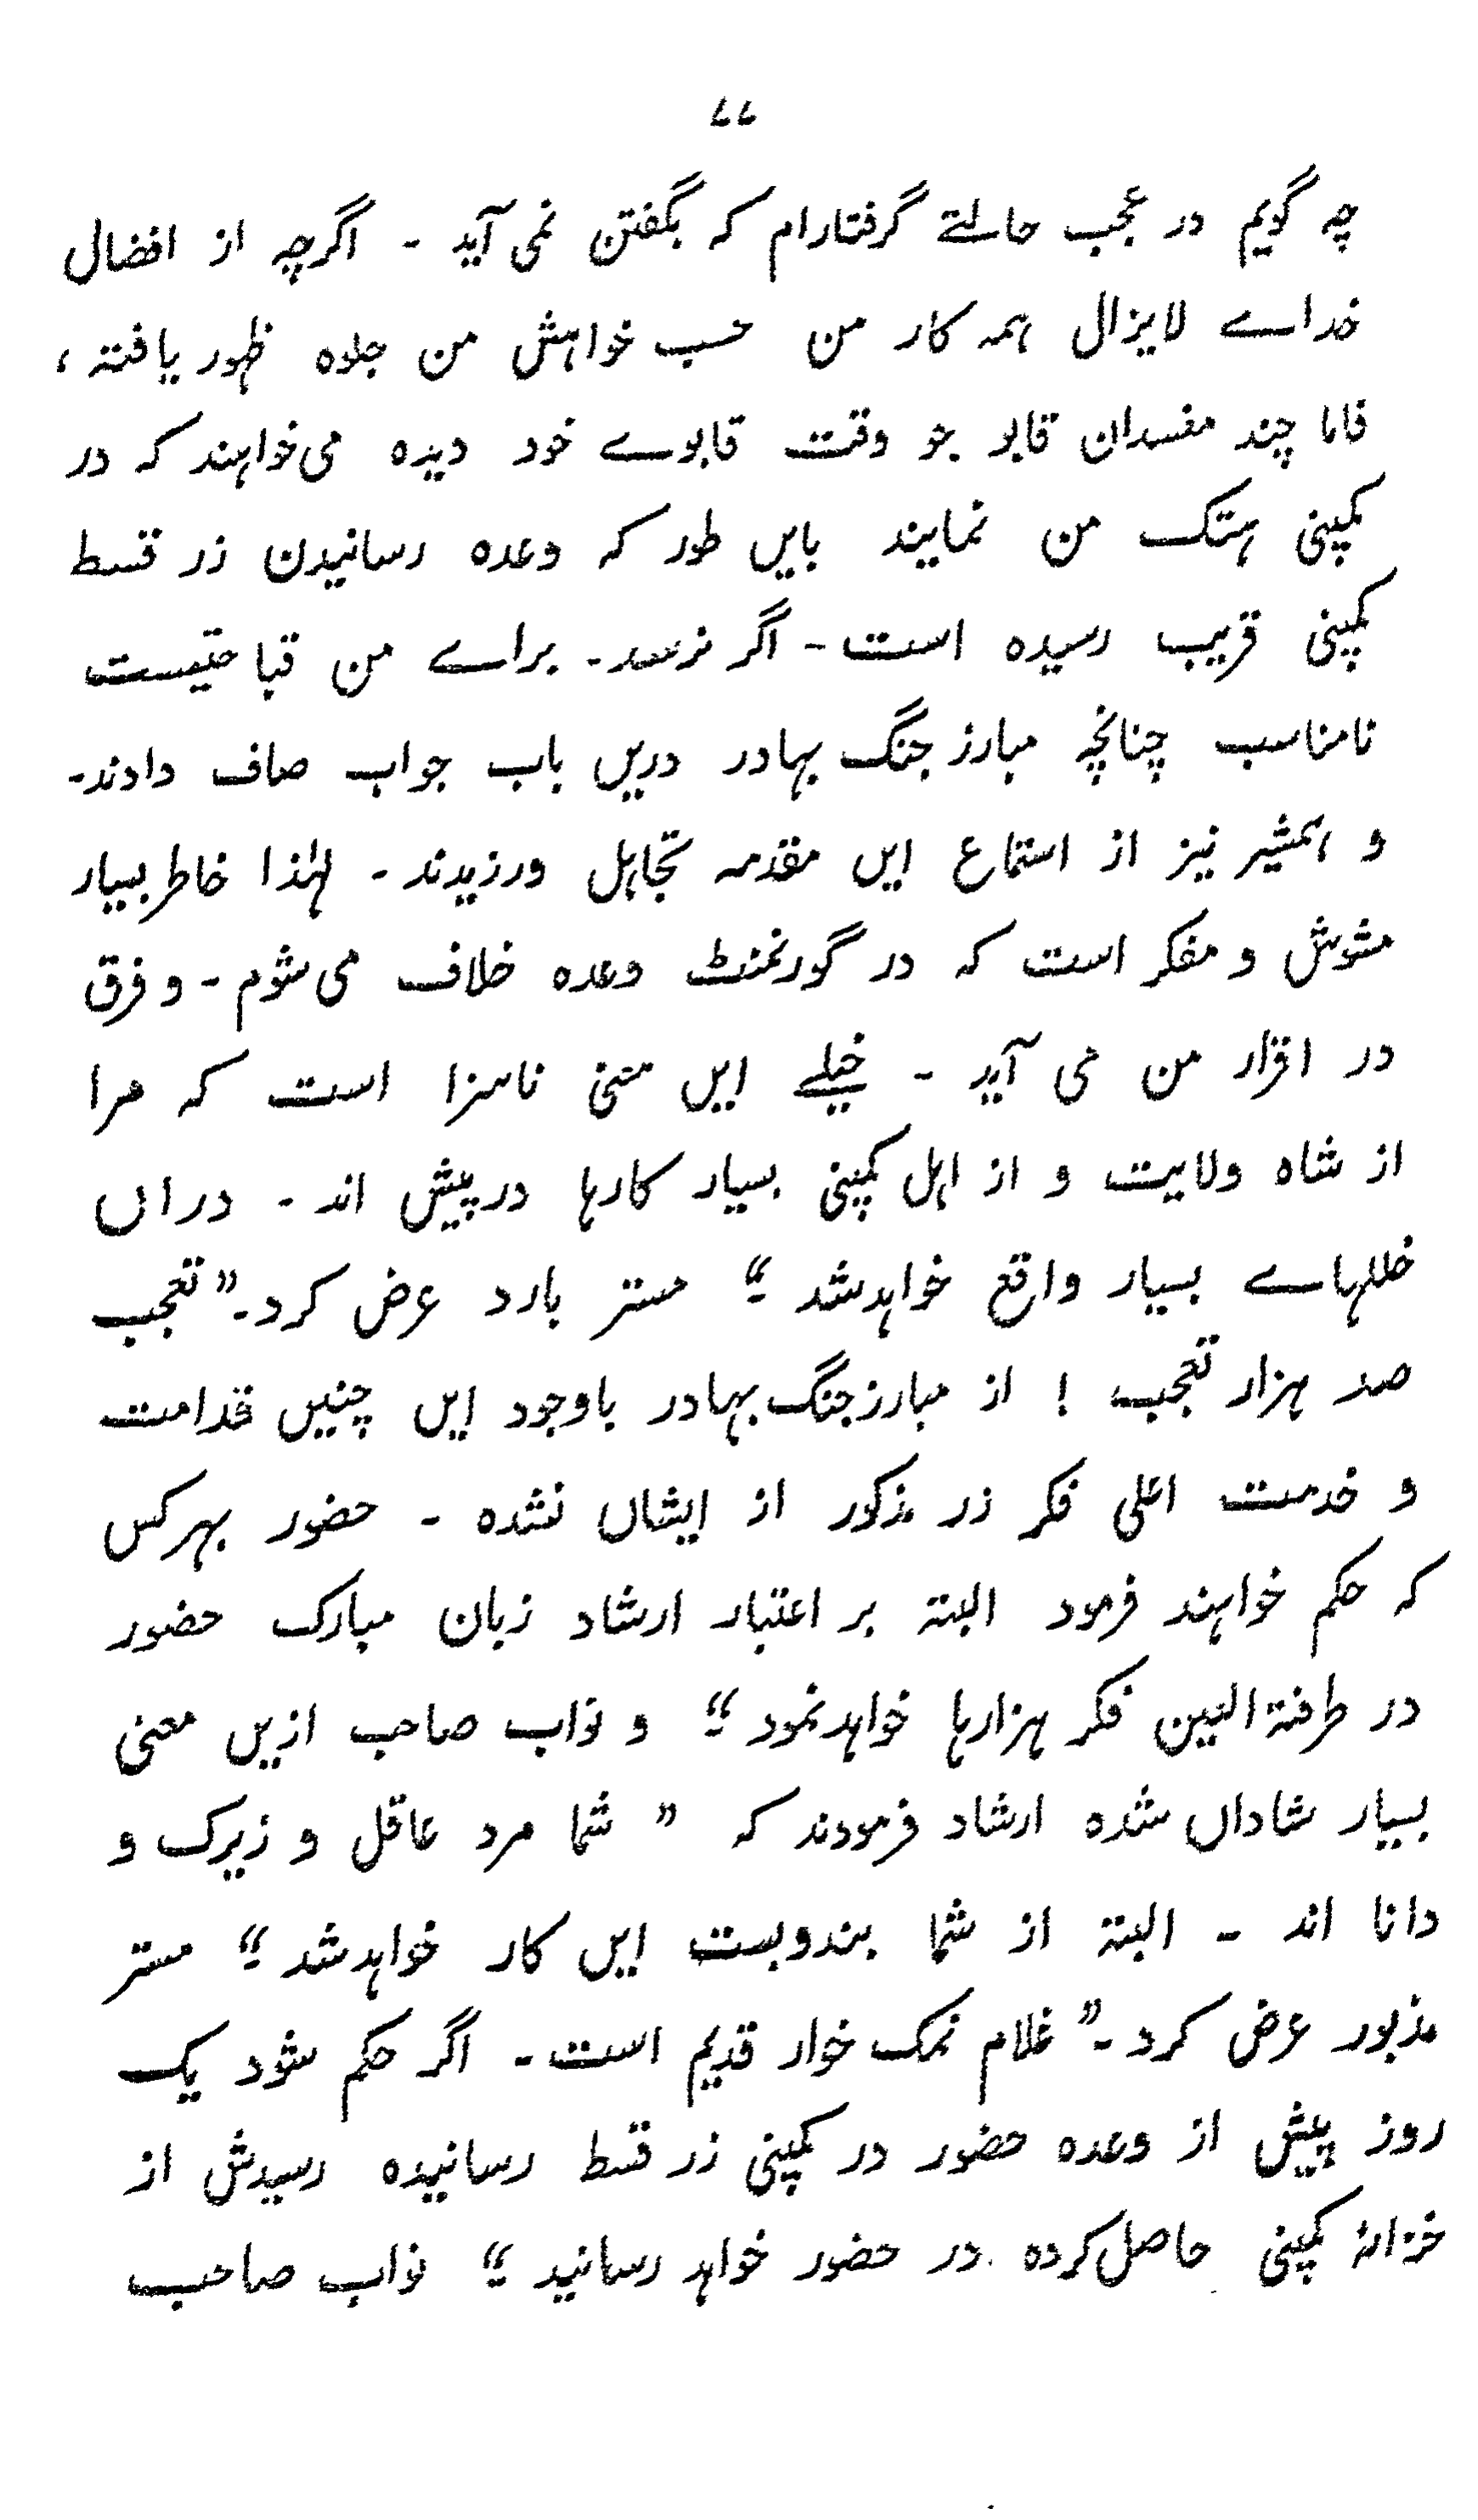 ۷۷
چه گویم در عجب حالتے گرفتارام که بگفتن نمی آید - اگرچه از افضال
خداے لایزال همه کار من حسب خواهش من جلوه ظهور یافته ،
فاما چند مفسدان قابو جو وقت قابوے خود دیده می‌خواهند که در
کمپنی هتک من نمایند بایں طور که وعده رسانیدن زر قسط
کمپنی قریب رسیده است - اگر نرسد - براے من قباحتیست
نامناسب چنانچه مبارز جنگ بهادر دریں باب جواب صاف دادند -
و همشیر نیز از استماع ایں مقدمه تجاهل ورزیدند - لهٰذا خاطر بسیار
مشوش و مفکر است که در گورنمنٹ وعده خلاف می شوم - و فرق
در اقرار من می آید - خیلے ایں معنی ناسزا است که مرا
از شاه ولایت و از اهل کمپنی بسیار کارها درپیش اند - دراں
خللهاے بسیار واقع خواهدشد ۔“ مستر بارد عرض کرد - ”تعجب
صد هزار تعجب ! از مبارزجنگ بهادر باوجود ایں چنیں قدامت
و خدمت اعلی فکر زر مذکور از ایشاں نشده - حضور بهرکس
که حکم خواهند فرمود البته بر اعتبار ارشاد زبان مبارک حضور
در طرفة العین فکر هزارها خواهدنمود ۔“ و نواب صاحب ازیں معنی
بسیار شاداں شده ارشاد فرمودند که ” شما مرد عاقل و زیرک و
دانا اند - البته از شما بندوبست ایں کار خواهدشد ۔“ مستر
مذبور عرض کرد - ”غلام نمک خوار قدیم است - اگر حکم شود یک
روز پیش از وعده حضور در کمپنی زر قسط رسانیده رسیدش از
خزانۂ کمپنی حاصل کرده در حضور خواهد رسانید ۔“ نواب صاحب